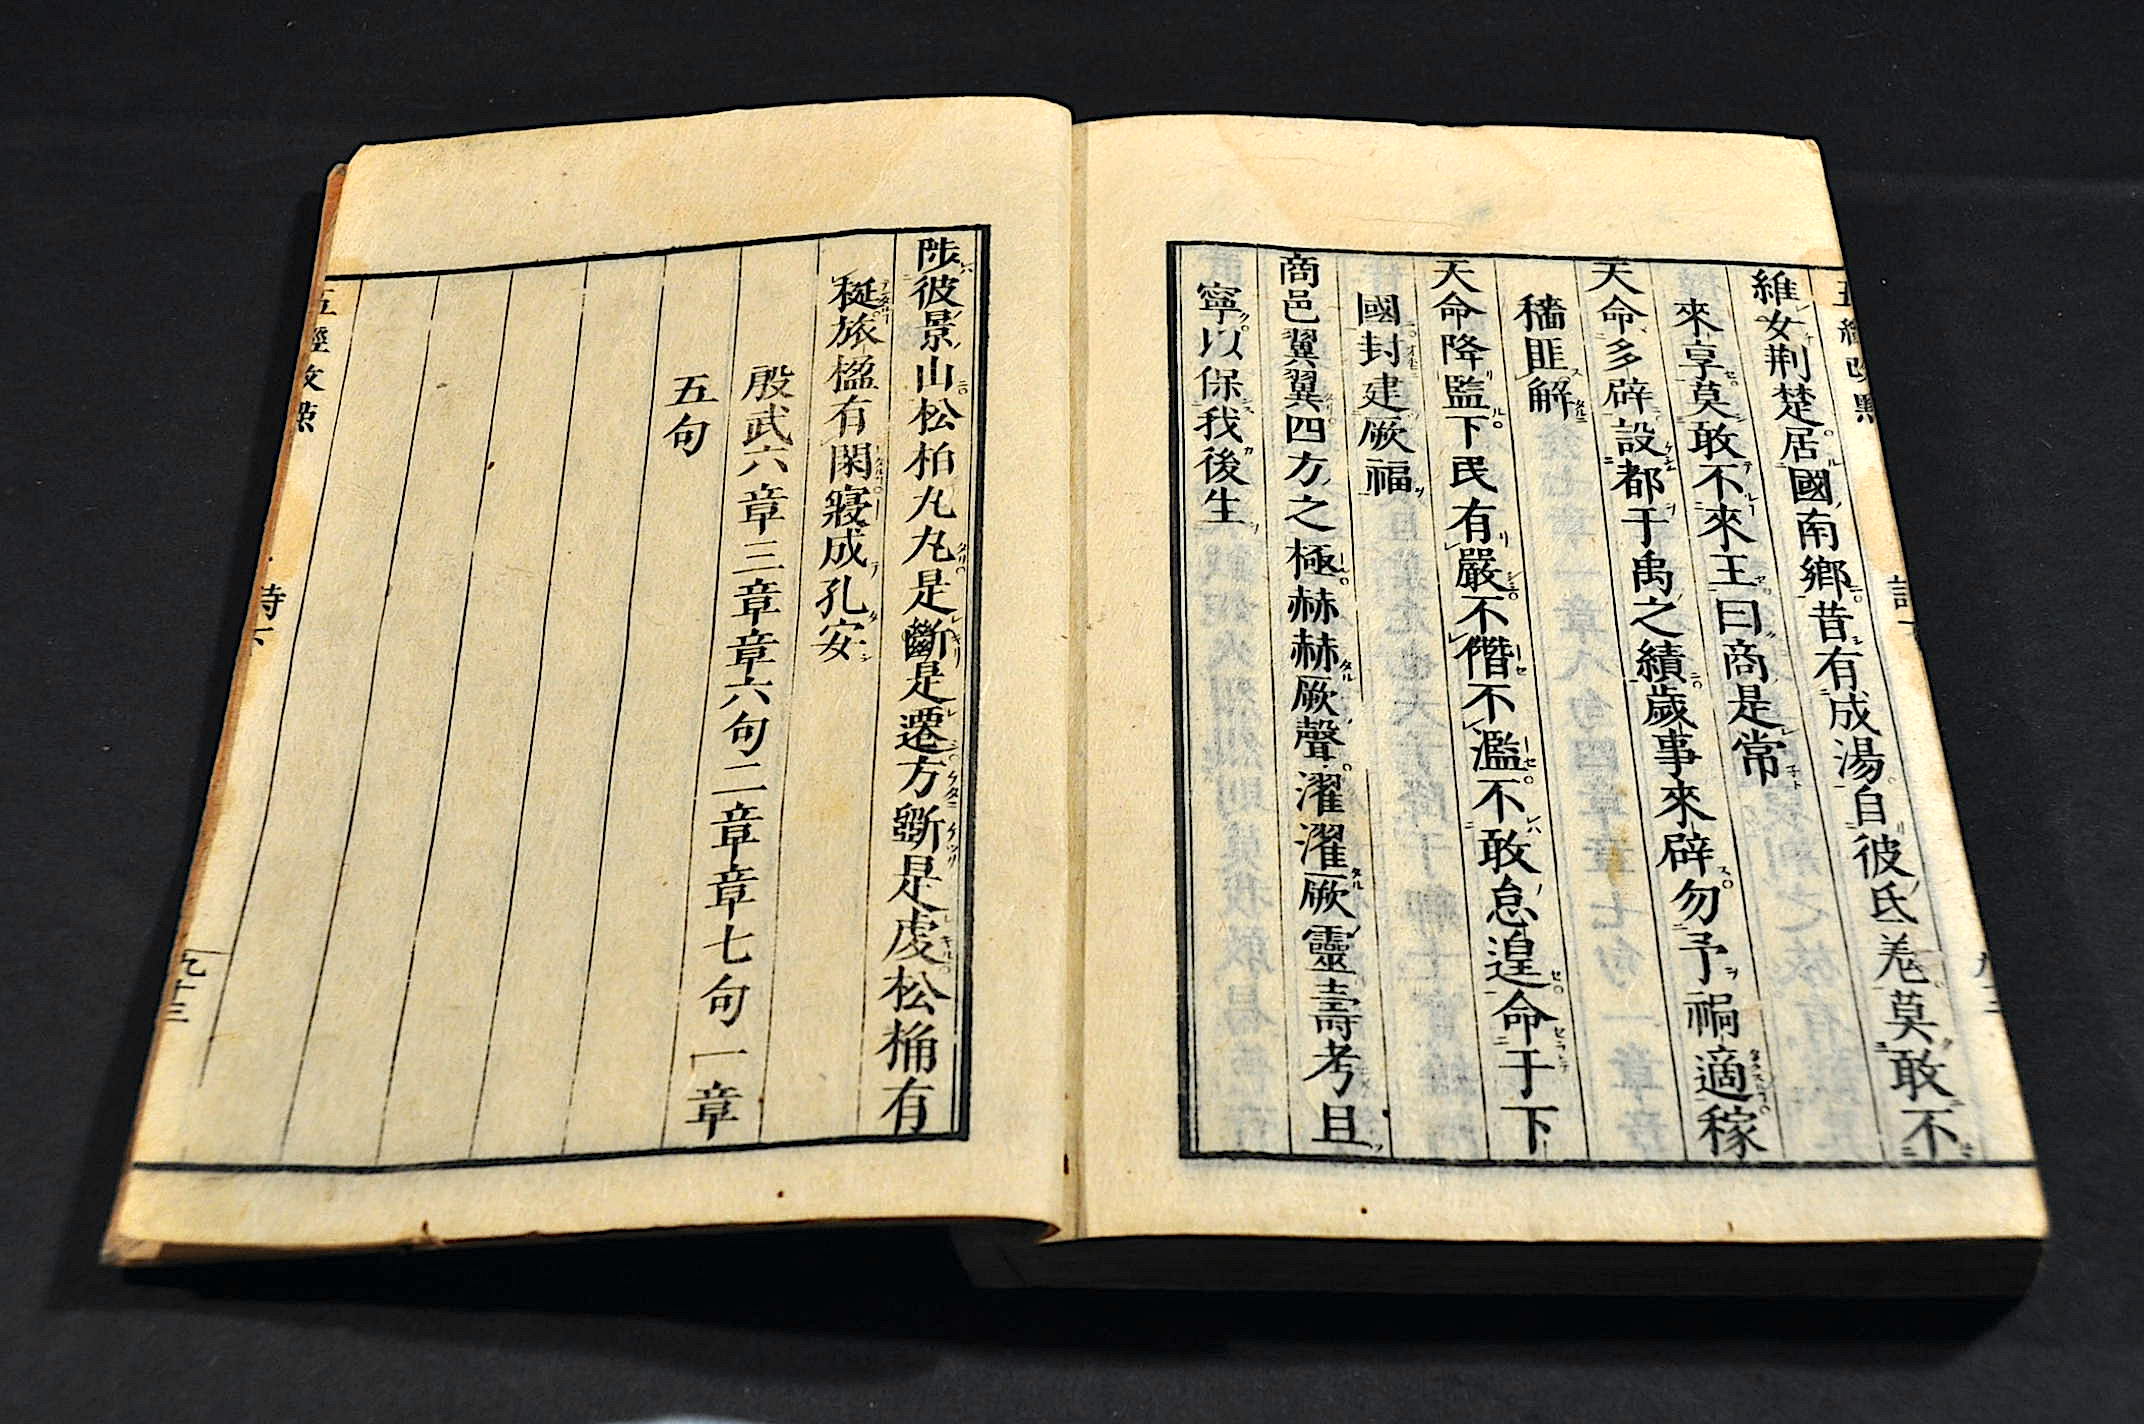 維女荆楚居國南鄉昔有成湯自彼氐羌莫敢不
來享莫敢不來王曰商是常
天命多辟設都于禹之績歲事來辟勿予禍適稼
穡匪解
天命降監下民有嚴不僭不濫不敢怠遑命于下
國封建厥福
商邑翼翼四方之極赫赫厥聲濯濯厥靈壽考且
寧以保我後生
陟彼景山松柏丸丸是斷是遷方斲是虔松桷有
梴旅楹有閑寢成孔安
殷武六章三章章六句二章章七句一章
五句
五經改點
詩下
九十三